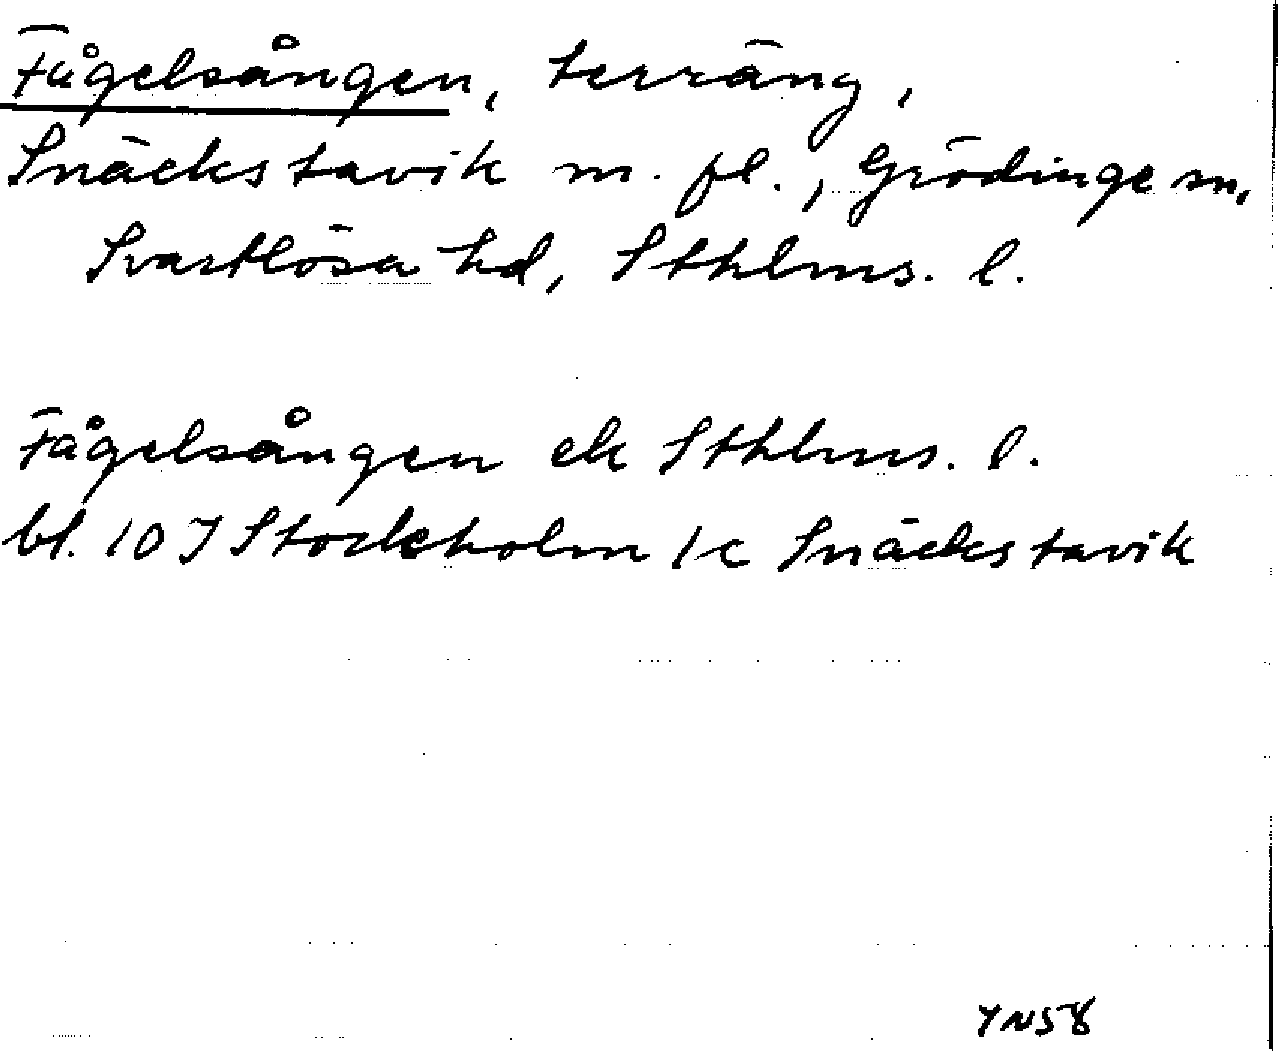 Fågelsången, terräng,
Snäckstavik m. fl., Grödinge sn,
Svartlösa hd, Sthlms. l.
Fågelsången ek Sthlms. l.
bl. 10 I Stockholm 1 c Snäckstavik
YNS8